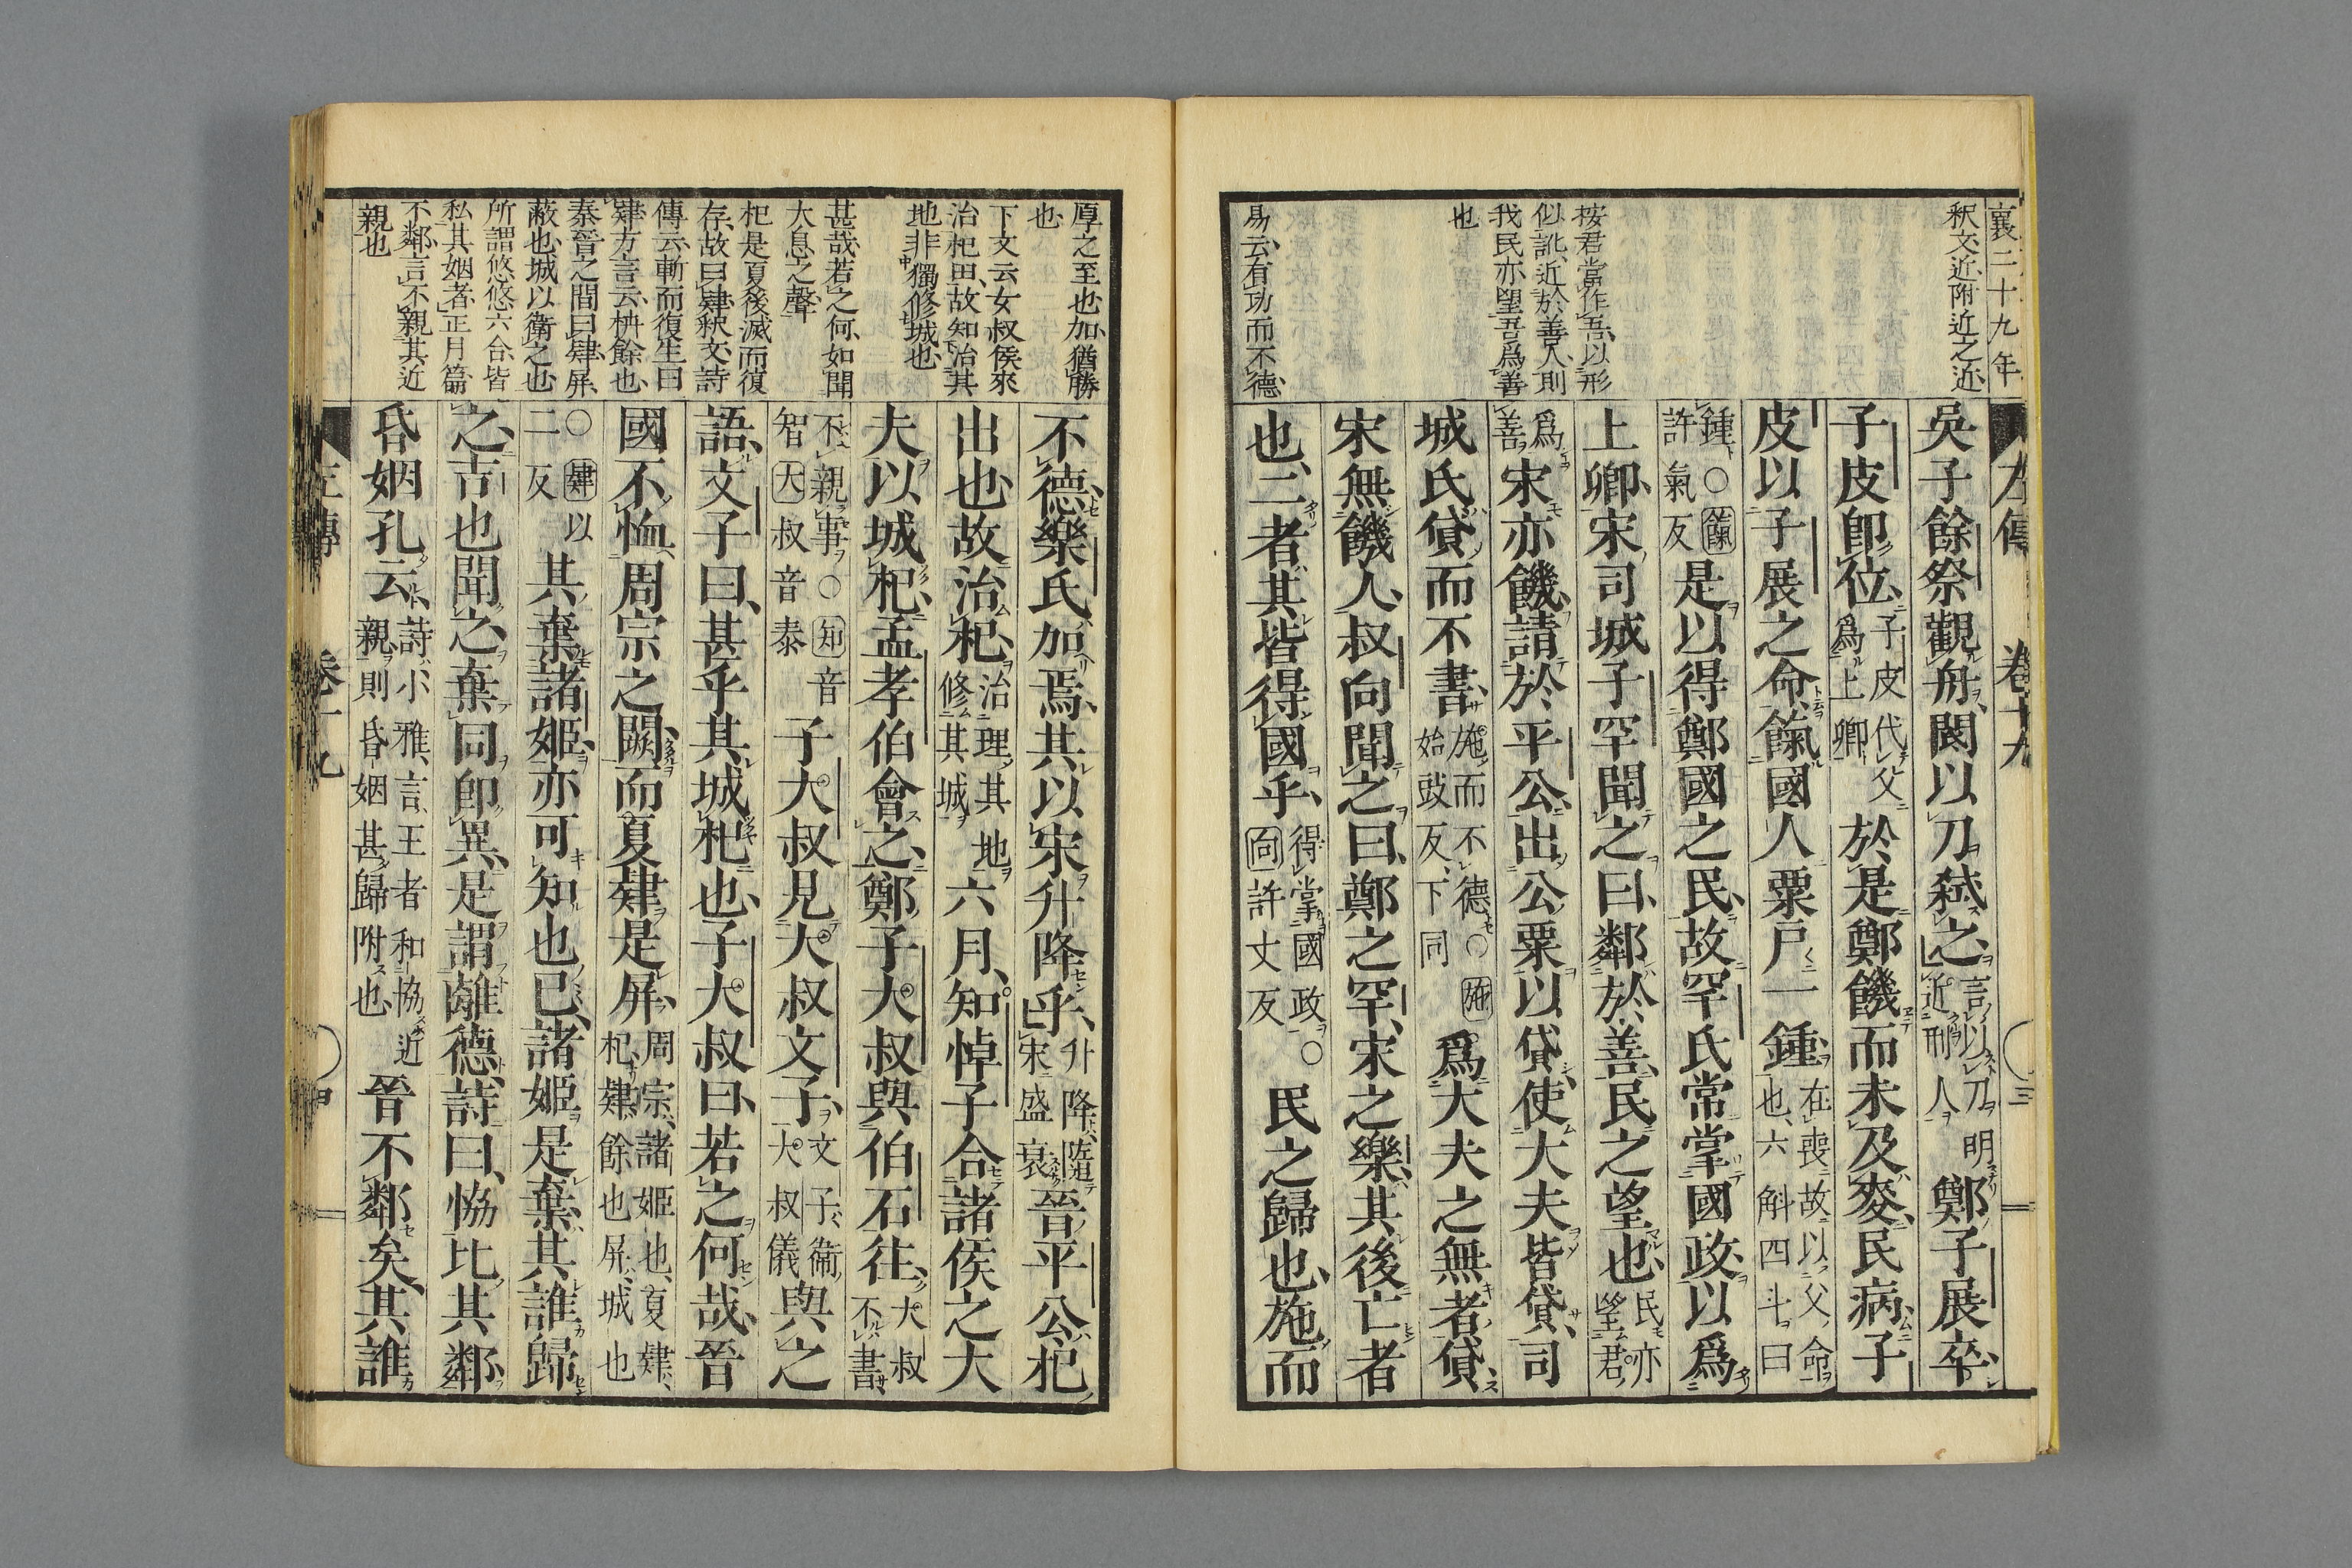 襄二十九年
左傳 卷十九 三
釈文近附近之近
按君當作吾以形
似訛近於善人則
我民亦望吾爲善
也
易云有功而不德
吳子餘祭觀舟閽以刀弑之言以刀明近刑人鄭子展卒
子皮即位子皮代父爲上卿於是鄭饑而未及麥民病子
皮以子展之命餼國人粟戶一鍾在喪故以父命也六斛四斗曰
鍾○餼許氣反是以得鄭國之民故罕氏常掌國政以爲
上卿宋司城子罕聞之曰鄰於善民之望也民亦望君
爲善宋亦饑請於平公出公粟以貸使大夫皆貸司
城氏貸而不書施而不德○施始豉反下同爲大夫之無者貸
宋無饑人叔向聞之曰鄭之罕宋之樂其後亡者
也二者其皆得國乎得掌國政○向許丈反民之歸也施而
厚之至也加猶勝
也
下文云女叔侯來
治杞田故知治其
地非獨修城也
甚哉若之何如聞
大息之聲
杞是夏後滅而復
存故曰肄釈文詩
傳云斬而復生曰
肄方言云枿餘也
秦晉之間曰肄屏
蔽也城以衛之也
所謂悠悠六合皆
私其姻者正月篇
不鄰言不親其近
親也
不德樂氏加焉其以宋升降乎升降隨宋盛衰晉平公杞
出也故治杞治理其地修其城六月知悼子合諸侯之大
夫以城杞孟孝伯會之鄭子大叔與伯石往大叔不書
不親事○知音智大叔音泰子大叔見大叔文子文子衛大叔儀與之
語文子曰甚乎其城杞也子大叔曰若之何哉晉
國不恤周宗之闕而夏肄是屏周宗諸姬也夏肄杞肄餘也屏城也
○肄以二反其棄諸姬亦可知也已諸姬是棄其誰歸
之吉也聞之棄同即異是謂離德詩曰恊比其鄰
昏姻孔云詩小雅言王者和恊近親則昏姻甚歸附也晉不鄰矣其誰